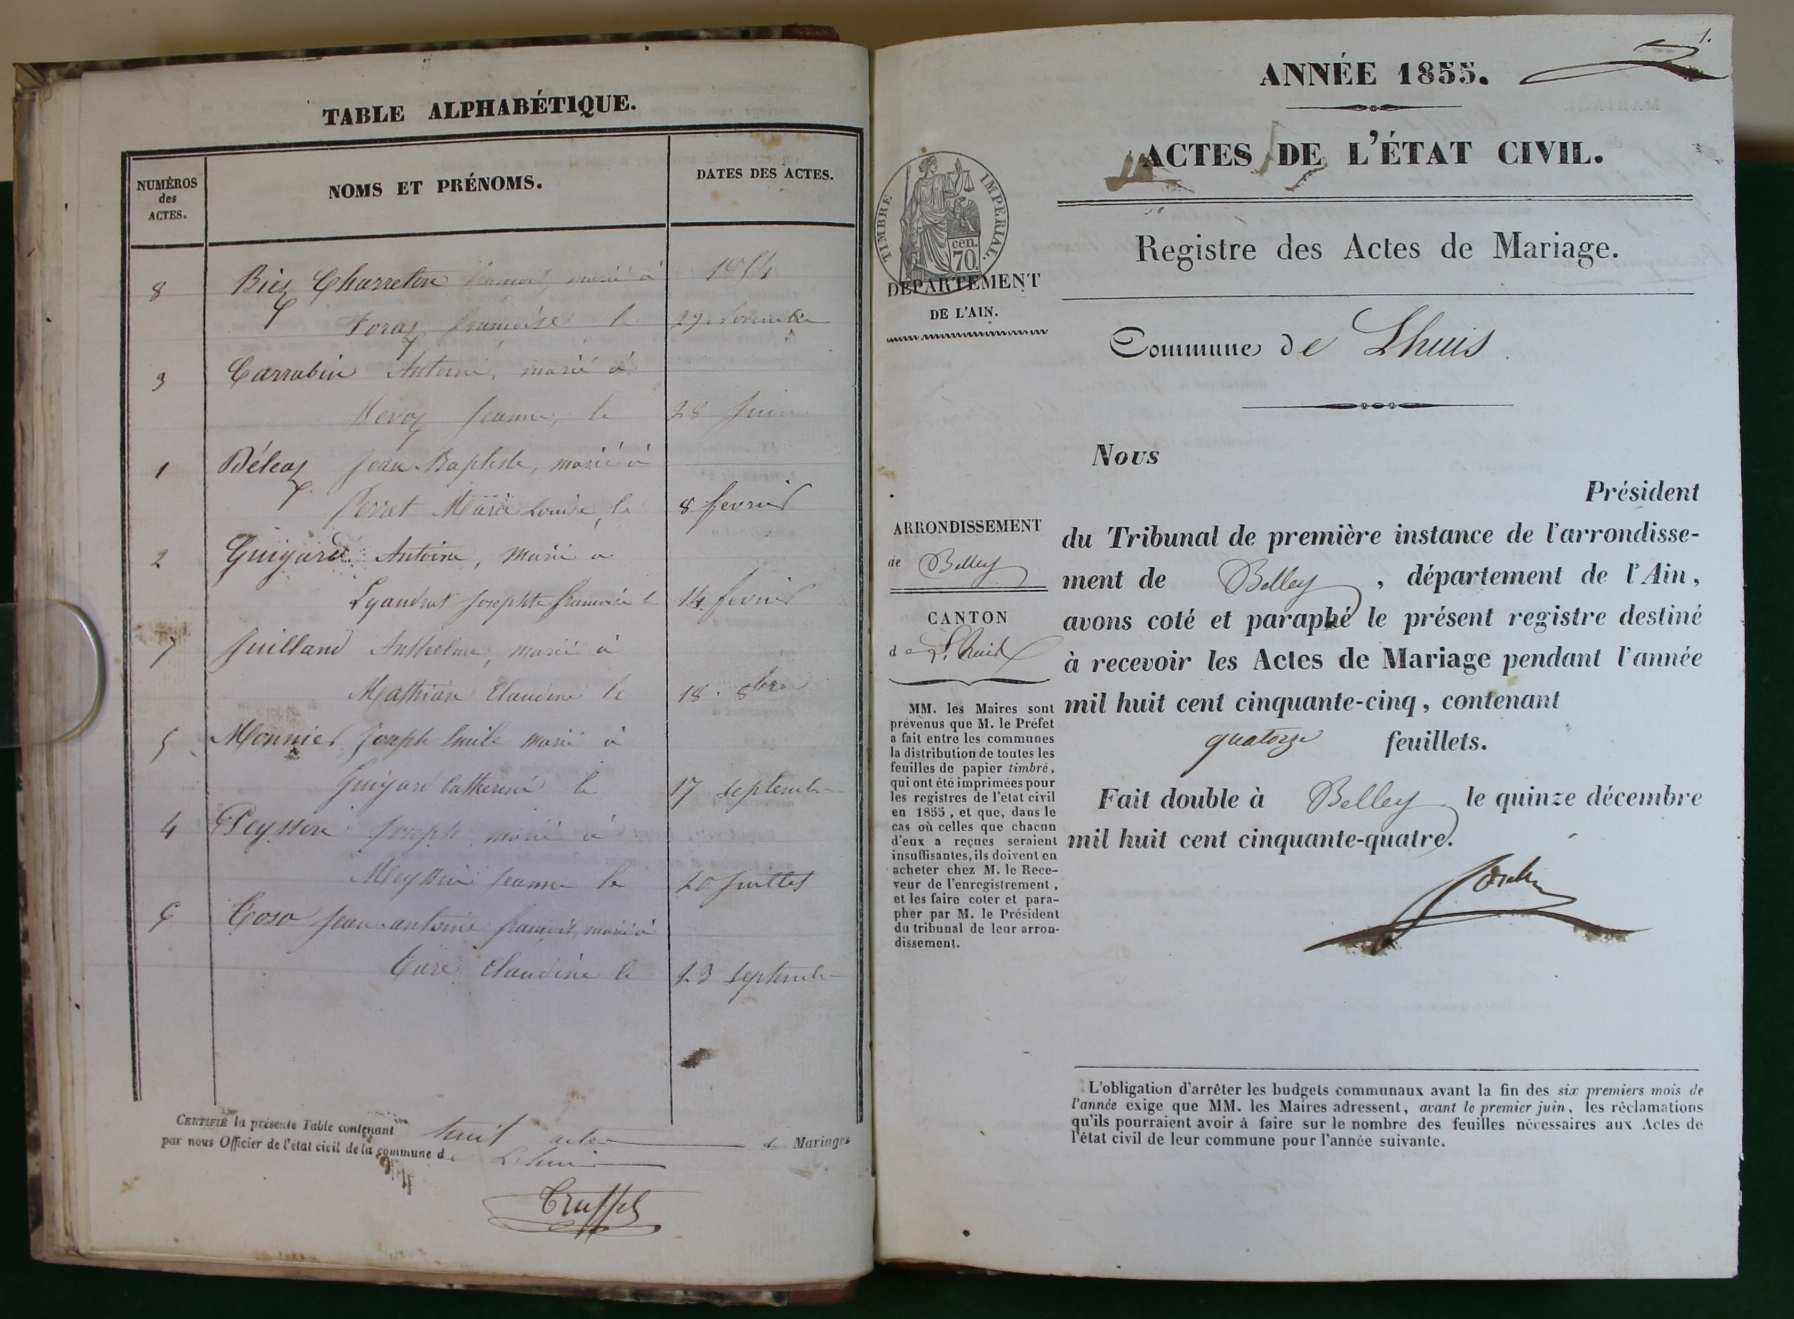 TABLE ALPHABÉTIQUE.
NUMÉROS
des
ACTES.
NOMS ET PRÉNOMS.
DATES DES ACTES.
1854
8 Charreton marié à
le 29 novembre
3 Carrabin Antoine, marié à
Jeanne, le 28 Juin
1 Jean Baptiste, marié à
Perret Marie Louise, le 8 fevrier
2 Guigard Antoine, marié a
Josephte françoise l 14 fevrier
7 Juilland Anthelme, marié à
Mathian Claudine le 18. 8bre
5 Monnier Joseph Emile marié à
Guigard Catherine le 17 septembre
4 Peysson Joseph marié à
Jeanne le 20 Juillet
6 Jean antoine françois, marié à
Claudine le 23 septembre
CERTIFIÉ la présente Table contenant huit actes de Mariages
par nous Officier de l'état civil de la commune de Lhuis
1.
ANNÉE 1855.
ACTES DE L'ÉTAT CIVIL.
TIMBRE IMPÉRIAL.
cen.
70
DÉPARTEMENT
DE L'AIN.
Registre des Actes de Mariage.
Commune de Lhuis
ARRONDISSEMENT
de Belley
CANTON
de Lhuis
MM. les Maires sont
prévenus que M. le Préfet
a fait entre les communes
la distribution de toutes les
feuilles de papier timbré,
qui ont été imprimées pour
les registres de l'état civil
en 1855, et que, dans le
cas où celles que chacun
d'eux a reçues seraient
insuffisantes, ils doivent en
acheter chez M. le Rece-
veur de l'enregistrement,
et les faire coter et para-
pher par M. le Président
du tribunal de leur arron-
dissement.
Nous
Président
du Tribunal de première instance de l'arrondisse-
ment de Belley, département de l'Ain,
avons coté et paraphé le présent registre destiné
à recevoir les Actes de Mariage pendant l'année
mil huit cent cinquante-cinq, contenant
quatorze feuillets.
Fait double à Belley le quinze décembre
mil huit cent cinquante-quatre.
L'obligation d'arrêter les budgets communaux avant la fin des six premiers mois de
l'année exige que MM. les Maires adressent, avant le premier juin, les réclamations
qu'ils pourraient avoir à faire sur le nombre des feuilles nécessaires aux Actes de
l'état civil de leur commune pour l'année suivante.